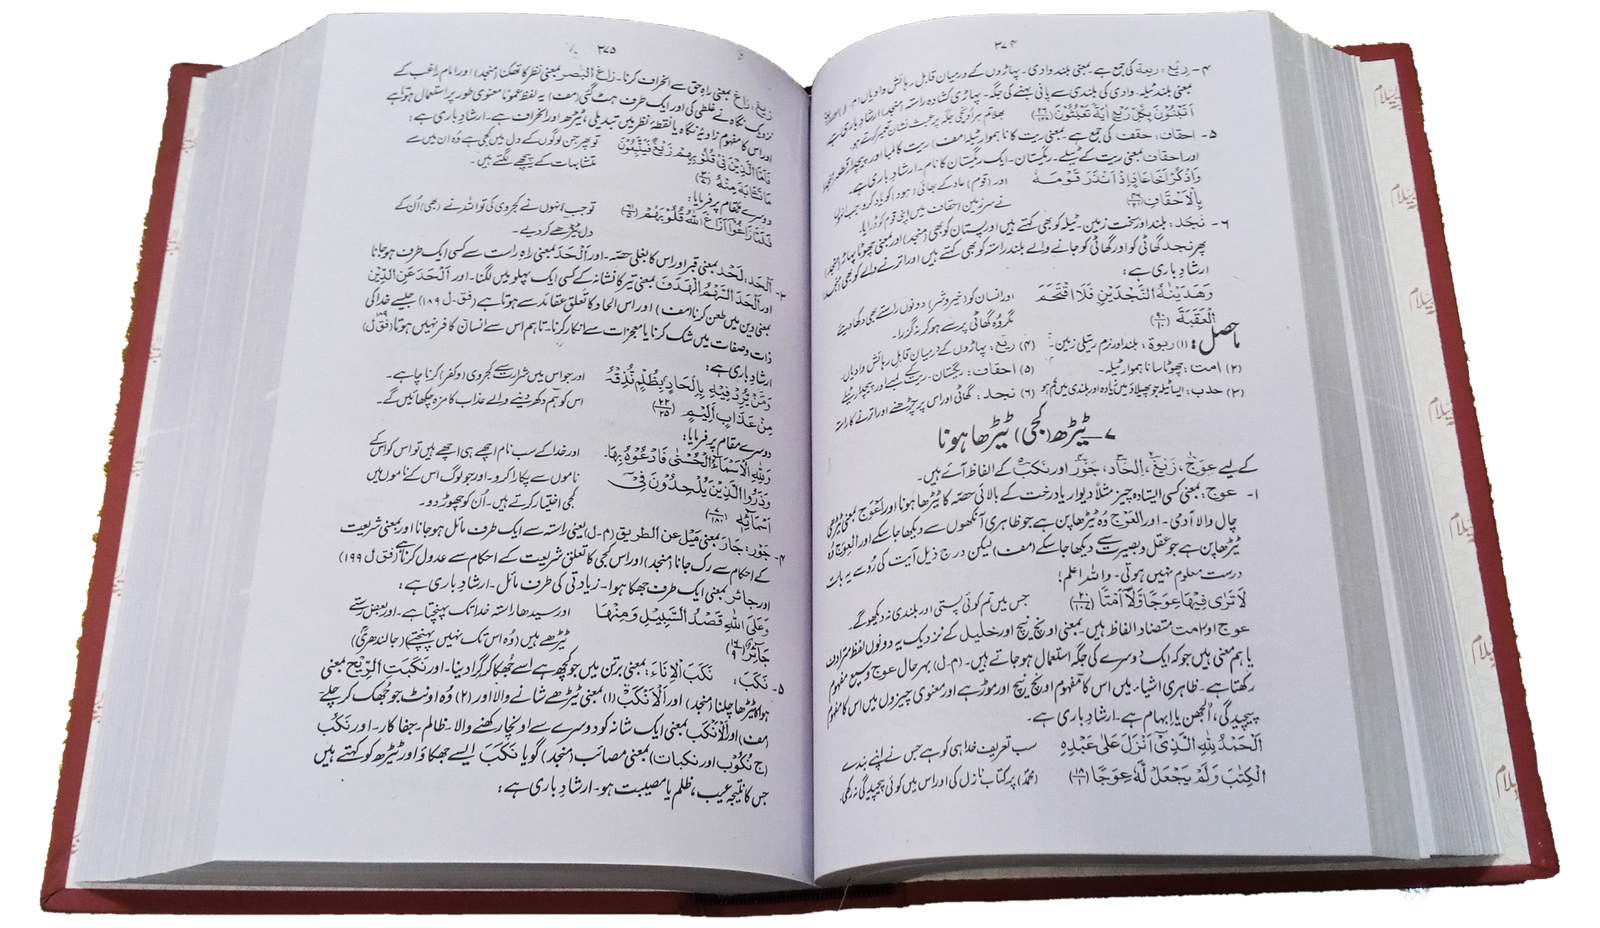 ۳۷۴
۴- رِیْع : ریعة کی جمع ہے۔ بمعنی بلند وادی۔ پہاڑوں کے درمیان قابل رہائش وادیاں (م-ل)
بمعنی بلند ٹیلہ۔ وادی کی بلندی سے پانی بہنے کی جگہ۔ پہاڑی کشادہ راستہ (منجد) ارشادِ باری ہے
اَتَبْنُوْنَ بِکُلِّ رِیْعٍ اٰیَةً تَعْبَثُوْنَ (۲۶/۱۲۸) بھلا تم ہر اونچی جگہ پر عبث نشان تعمیر کرتے ہو۔
۵- احقاف: حقف کی جمع ہے بمعنی ریت کا نا ہموار ٹیلہ (مف) ریت کا لمبا اور پیچدار
اور احقاف بمعنی ریت کے ٹیلے۔ ریگستان۔ ایک ریگستان کا نام۔ ارشادِ باری ہے۔
وَاذْکُرْ اَخَا عَادٍ اِذْ اَنْذَرَ قَوْمَهٗ اور (قوم) عاد کے بھائی (ہود) کو یاد کرو جب انہوں
بِالْاَحْقَافِ نے سرزمینِ احقاف میں اپنی قوم کو ڈرایا۔
۶- نجد: بلند اور سخت زمین۔ ٹیلہ کو بھی کہتے ہیں اور پستان کو بھی (منجد) اور بمعنی چھوٹا پہاڑ (منجد)
پھر نجد گھاٹی کو اور گھاٹی کو جانے والے بلند راستہ کو بھی کہتے ہیں اور اترنے والے کو بھی
ارشادِ باری ہے:
وَهَدَیْنٰهُ النَّجْدَیْنِ فَلَا اقْتَحَمَ اور انسان کو (خیر و شر) دونوں راستے بھی دکھا دیئے
الْعَقَبَةَ (۹۰/۱۰) مگر وہ گھاٹی پر سے ہو کر نہ گزرا۔
ماحصل: (۱) ربوة: بلند اور نرم ریتلی زمین۔ (۴) ریع: پہاڑوں کے درمیان قابل رہائش وادیاں۔
(۲) امت: چھوٹا سا نا ہموار ٹیلہ۔ (۵) احقاف: ریگستان۔ ریت کے لمبے اور پیچدار ٹیلے
(۳) حدب: ایسا ٹیلہ جو پھیلاؤ میں زیادہ اور بلندی میں کم ہو (۶) نجد: گھاٹی اور اس پر چڑھنے اور اترنے کا راستہ
۷ــ ٹیڑھ (کجی) ٹیڑھا ہونا
کے لیے عِوَج، زَیْغ، اِلحَاد، جَوْر اور نَکَبَ کے الفاظ آئے ہیں۔
۱- عوج: بمعنی کسی ایستادہ چیز مثلاً دیوار یا درخت کے بالائی حصّہ کا ٹیڑھا ہونا اور اَعْوَج بمعنی ٹیڑھی
چال والا آدمی۔ اور العَوَج وُہ ٹیڑھا پن ہے جو ظاہری آنکھوں سے دیکھا جا سکے اور العِوَج وُہ
ٹیڑھا پن ہے جو عقل و بصیرت سے دیکھا جا سکے (مف) لیکن درج ذیل آیت کی رُو سے یہ بات
درست معلوم نہیں ہوتی۔ واللہ اعلم!
لَا تَرٰی فِیْهَا عِوَجًا وَّلَاۤ اَمْتًا (۲۰/۱۰۷) جس میں تم کوئی پستی اور بلندی نہ دیکھو گے۔
عوج اور امت متضاد الفاظ ہیں۔ بمعنی اونچ نیچ اور خلیل کے نزدیک یہ دونوں لفظ مترادف
یا ہم معنی ہیں جو کہ ایک دوسرے کی جگہ استعمال ہو جاتے ہیں۔ (م-ل) بہرحال عوج وسیع مفہوم
رکھتا ہے۔ ظاہری اشیاء میں اس کا مفہوم اونچ نیچ اور موڑ ہے اور معنوی چیزوں میں اس کا مفہوم
پیچیدگی، اُلجھن یا ابہام ہے۔ ارشادِ باری ہے۔
اَلْحَمْدُ لِلّٰهِ الَّذِیْۤ اَنْزَلَ عَلٰی عَبْدِهِ سب تعریف خدا ہی کو ہے جس نے اپنے بندے
الْکِتٰبَ وَلَمْ یَجْعَلْ لَّهٗ عِوَجًا (۱۸/۱) (محمدؐ) پر کتاب نازل کی اور اس میں کوئی پیچیدگی نہ رکھی
۳۷۵
زَیغ: زَاغَ بمعنی راہِ حق سے انحراف کرنا۔ زاغ البصر بمعنی نظر کا تھکنا (منجد) اور امام راغب کے
نزدیک نگاہ نے غلطی کی اور ایک طرف ہٹ گئی (مف) یہ لفظ عموماً معنوی طور پر استعمال ہوتا ہے
اور اس کا مفہوم زاویۂ نگاہ یا نقطۂ نظر میں تبدیلی، ٹیڑھ اور انحراف ہے۔ ارشادِ باری ہے:
فَاَمَّا الَّذِیْنَ فِیْ قُلُوْبِهِمْ زَیْغٌ فَیَتَّبِعُوْنَ تو پھر جن لوگوں کے دل میں کجی ہے وُہ ان میں سے
مَا تَشَابَهَ مِنْهُ (۳/۷) متشابہات کے پیچھے لگتے ہیں۔
دوسرے مقام پر فرمایا:
فَلَمَّا زَاغُوْۤا اَزَاغَ اللّٰهُ قُلُوْبَهُمْ (۶۱/۵) تو جب اُنہوں نے کجروی کی تو اللہ نے (بھی) اُن کے
دل ٹیڑھے کر دیے۔
۳- اَلْحَد: لَحْد بمعنی قبر اور اس کا بغلی حصّہ۔ اور اَلْحَدَ بمعنی راہِ راست سے کسی ایک طرف ہو جانا
اور اَلْحَدَ السَّهْمُ الْهَدَفَ بمعنی تیر کا نشانہ کے کسی ایک پہلو میں لگنا۔ اور اَلْحَدَ عَنِ الدِّیْن
بمعنی دین میں طعن کرنا (مف) اور اس الحاد کا تعلق عقائد سے ہوتا ہے (فق-ل ۱۸۹) جیسے خدا کی
ذات و صفات میں شک کرنا یا معجزات سے انکار کرنا۔ تاہم اس سے انسان کافر نہیں ہوتا (فق ل ۱۸۹)
ارشادِ باری ہے:
وَمَنْ یُّرِدْ فِیْهِ بِاِلْحَادٍۭ بِظُلْمٍ نُّذِقْهُ اور جو اس میں شرارت سے کجروی (و کفر) کرنا چاہے۔
مِنْ عَذَابٍ اَلِیْمٍ (۲۲/۲۵) اس کو ہم دکھ دینے والے عذاب کا مزہ چکھائیں گے۔
دوسرے مقام پر فرمایا:
وَلِلّٰهِ الْاَسْمَآءُ الْحُسْنٰی فَادْعُوْهُ بِهَا۔ اور خدا کے سب نام اچھے ہی اچھے ہیں تو اس کو اس کے
وَذَرُوا الَّذِیْنَ یُلْحِدُوْنَ فِیْۤ ناموں سے پکارا کرو۔ اور جو لوگ اس کے ناموں میں
اَسْمَآئِهٖ (۷/۱۸۰) کجی اختیار کرتے ہیں۔ اُن کو چھوڑ دو۔
۴- جَوْر: جَارَ بمعنی مَیْل عن الطریق (م-ل) یعنی راستہ سے ایک طرف مائل ہو جانا اور بمعنی شریعت
کے احکام سے رک جانا (منجد) اور اس کجی کا تعلق شریعت کے احکام سے عدول کرنا ہے (فق ل ۱۹۹)
اور جائر بمعنی ایک طرف جھکا ہوا۔ زیادتی کی طرف مائل۔ ارشادِ باری ہے:
وَعَلَی اللّٰهِ قَصْدُ السَّبِیْلِ وَمِنْهَا اور سیدھا راستہ خدا تک پہنچتا ہے۔ اور بعض رستے
جَآئِرٌ (۱۶/۹) ٹیڑھے ہیں (وُہ اس تک نہیں پہنچتے) (جالندھریؒ)
۵- نَکَبَ: نَکَبَ الْاِنَاءَ: بمعنی برتن میں جو کچھ ہے اُسے جُھکا کر گرا دینا۔ اور نَکَبَتِ الرِّیْحُ بمعنی
ہوا کا ٹیڑھا چلنا (منجد) اور اَلْاَنْکَبُ (۱) بمعنی ٹیڑھے شانے والا اور (۲) وُہ اونٹ جو جُھک کر چلے
(مف) اور اَلْاَنْکَبُ بمعنی ایک شانہ کو دوسرے سے اونچا رکھنے والا۔ ظالم۔ جفا کار۔ اور نَکْبُ
(ج نُکُوْب اور نکبات) بمعنی مصائب (منجد) گویا نَکَبَ ایسے جھکاؤ اور ٹیڑھ کو کہتے ہیں
جس کا نتیجہ عیب، ظلم یا مصیبت ہو۔ ارشادِ باری ہے: